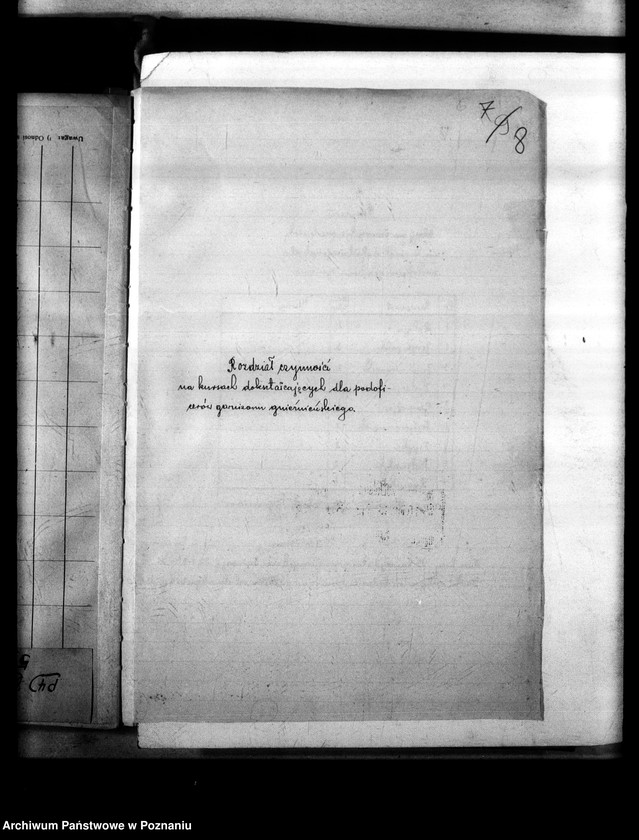 7/8
Uwaga: 1) Odnosi
Rozdział czynności
na kursach dokształcających dla podofi-
cerów garnizonu gnieźnieńskiego.
Archiwum Państwowe w Poznaniu